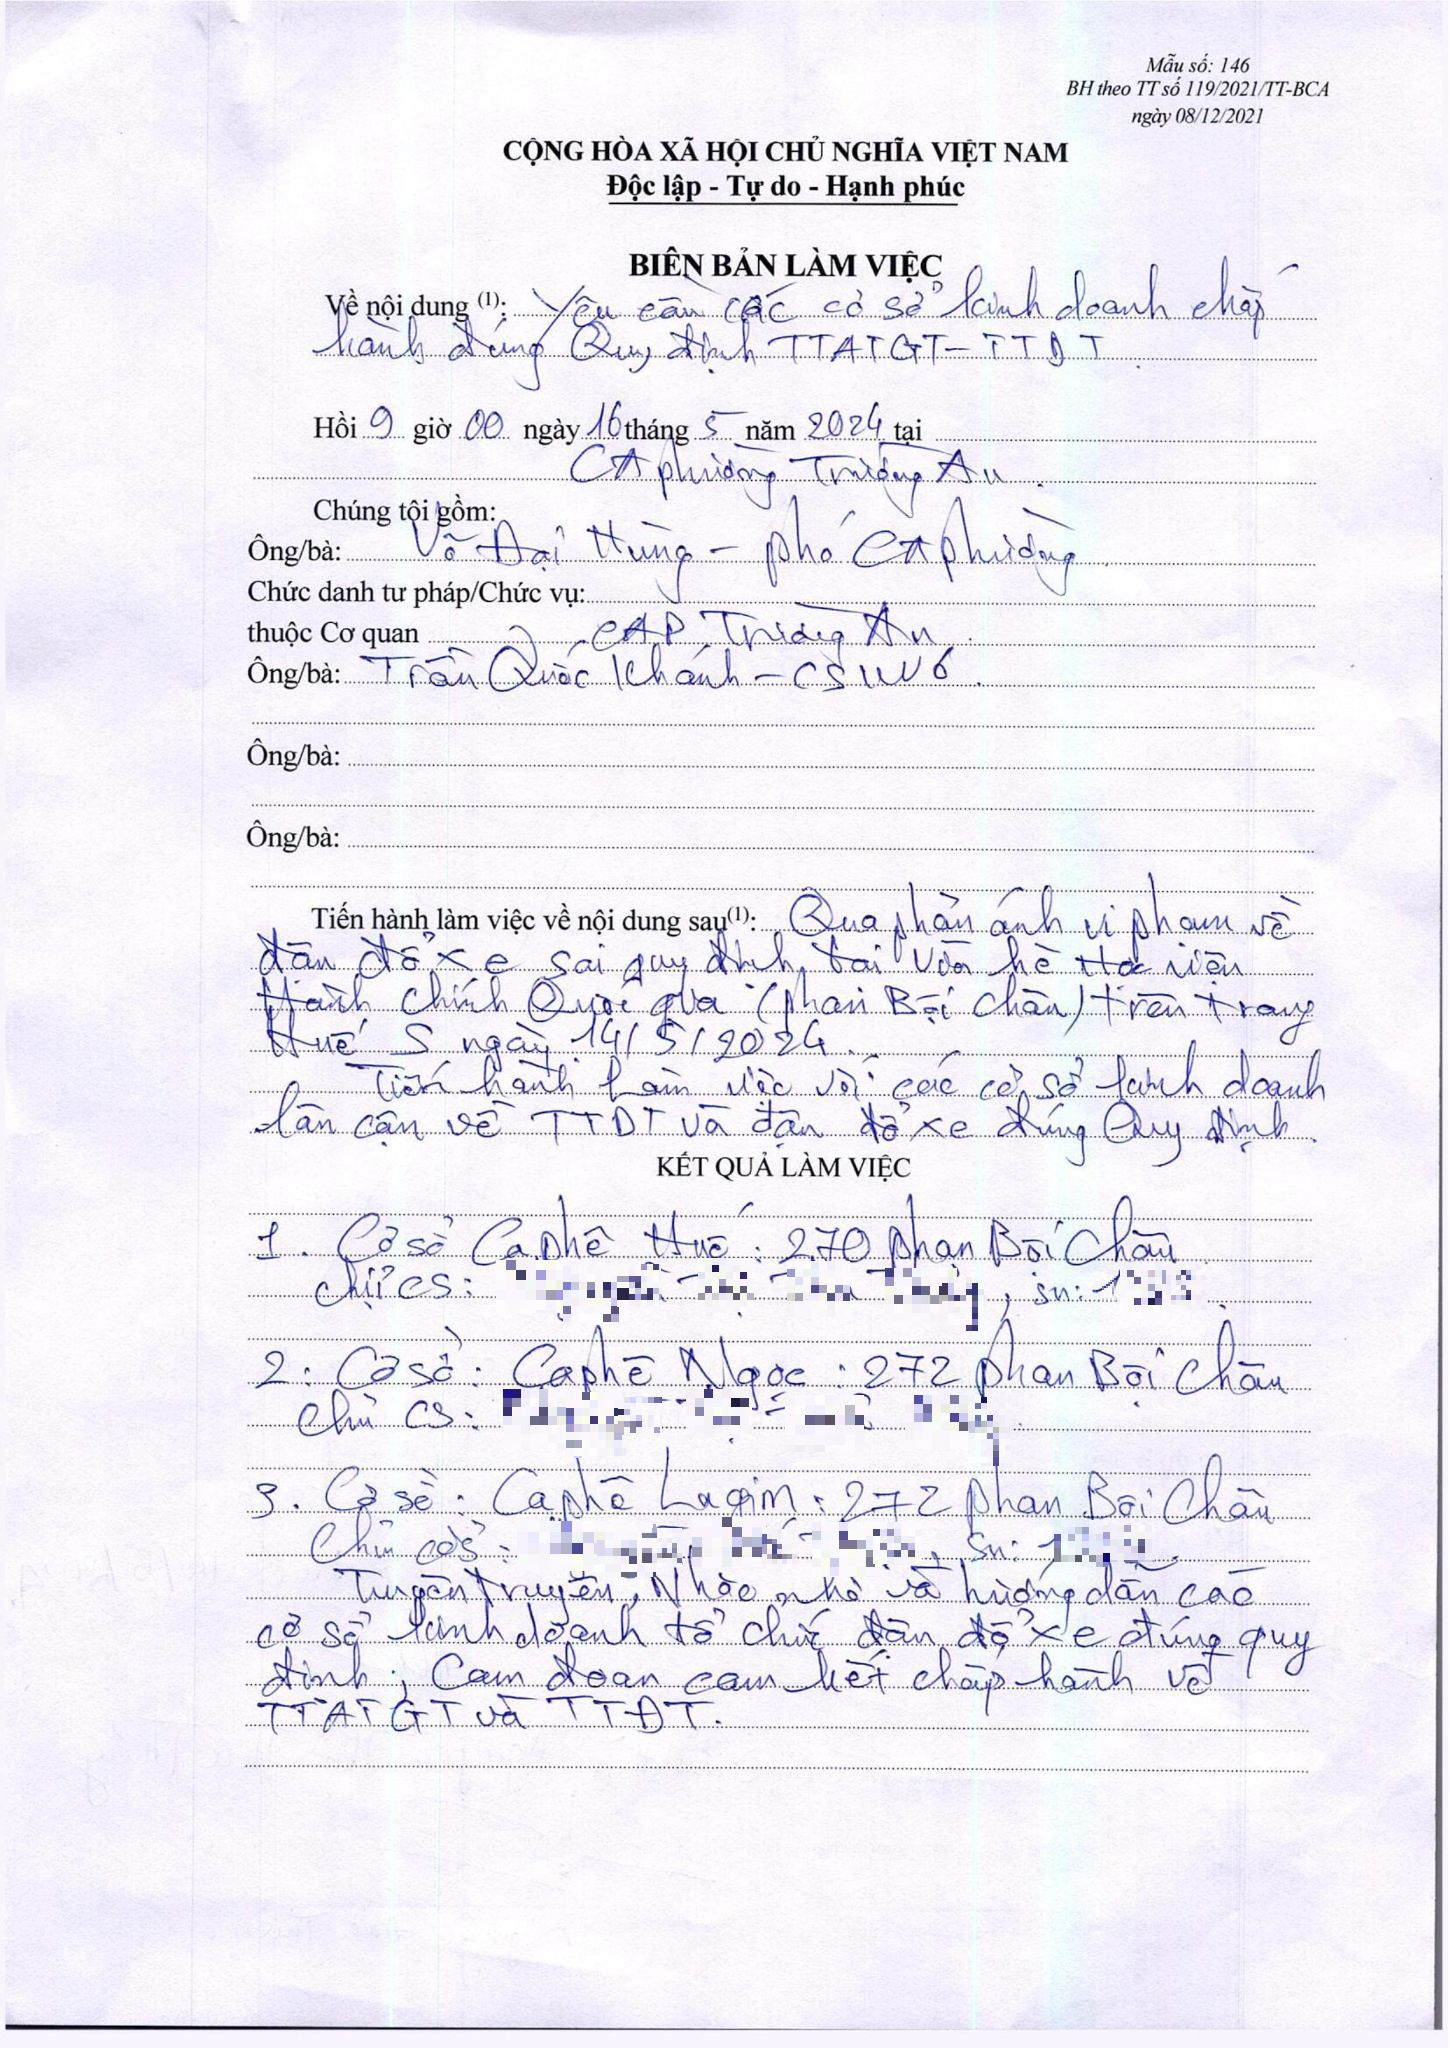 Mẫu số: 146
BH theo TT số 119/2021/TT-BCA
ngày 08/12/2021
CỘNG HÒA XÃ HỘI CHỦ NGHĨA VIỆT NAM
Độc lập - Tự do - Hạnh phúc
BIÊN BẢN LÀM VIỆC
Về nội dung (1): Yêu cầu các cơ sở kinh doanh chấp
hành đúng Quy định TTATGT - TTĐT
Hồi 9 giờ 00 ngày 16 tháng 5 năm 2024 tại
CA phường Trường An.
Chúng tôi gồm:
Ông/bà: Võ Đại Hùng - phó CA phường
Chức danh tư pháp/Chức vụ:
thuộc Cơ quan CAP Trường An.
Ông/bà: Trần Quốc Khánh -
Ông/bà:
Ông/bà:
Tiến hành làm việc về nội dung sau(1): Qua phản ánh vi phạm về
đậu đỗ xe sai quy định tại vỉa hè Học viện
Hành chính Quốc gia (Phan Bội Châu) trên trang
Huế S ngày 14/5/2024.
Tiến hành làm việc với các cơ sở kinh doanh
lân cận về TTĐT và đậu đỗ xe đúng Quy định.
KẾT QUẢ LÀM VIỆC
1. Cơ sở Caphê Huế: 270 Phan Bội Châu
Chủ CS: , sn:
2: Cơ sở: Caphê Ngọc: 272 Phan Bội Châu
Chủ CS:
3. Cơ sở: Caphê : 272 Phan Bội Châu
Chủ cơ sở: , sn:
Tuyên truyền, Nhắc nhở và hướng dẫn các
cơ sở kinh doanh tổ chức đậu đỗ xe đúng quy
định; Cam đoan cam kết chấp hành về
TTATGT và TTĐT.